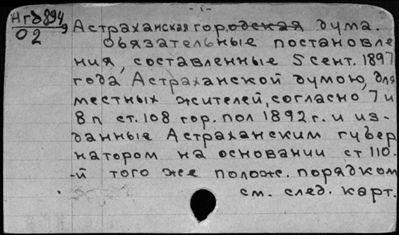 - 1 -
Астраханская городская дума.
02
Обязательные постановле
ния, составленные 5 сент. 1897
года Астраханской думою, для
местных жителей, согласно 7 и
8 п ст. 108 гор. пол 1892 г. и из-
данные Астраханским губер
натором на основании ст 110.
-й того же полож. порядком
см. след. карт.